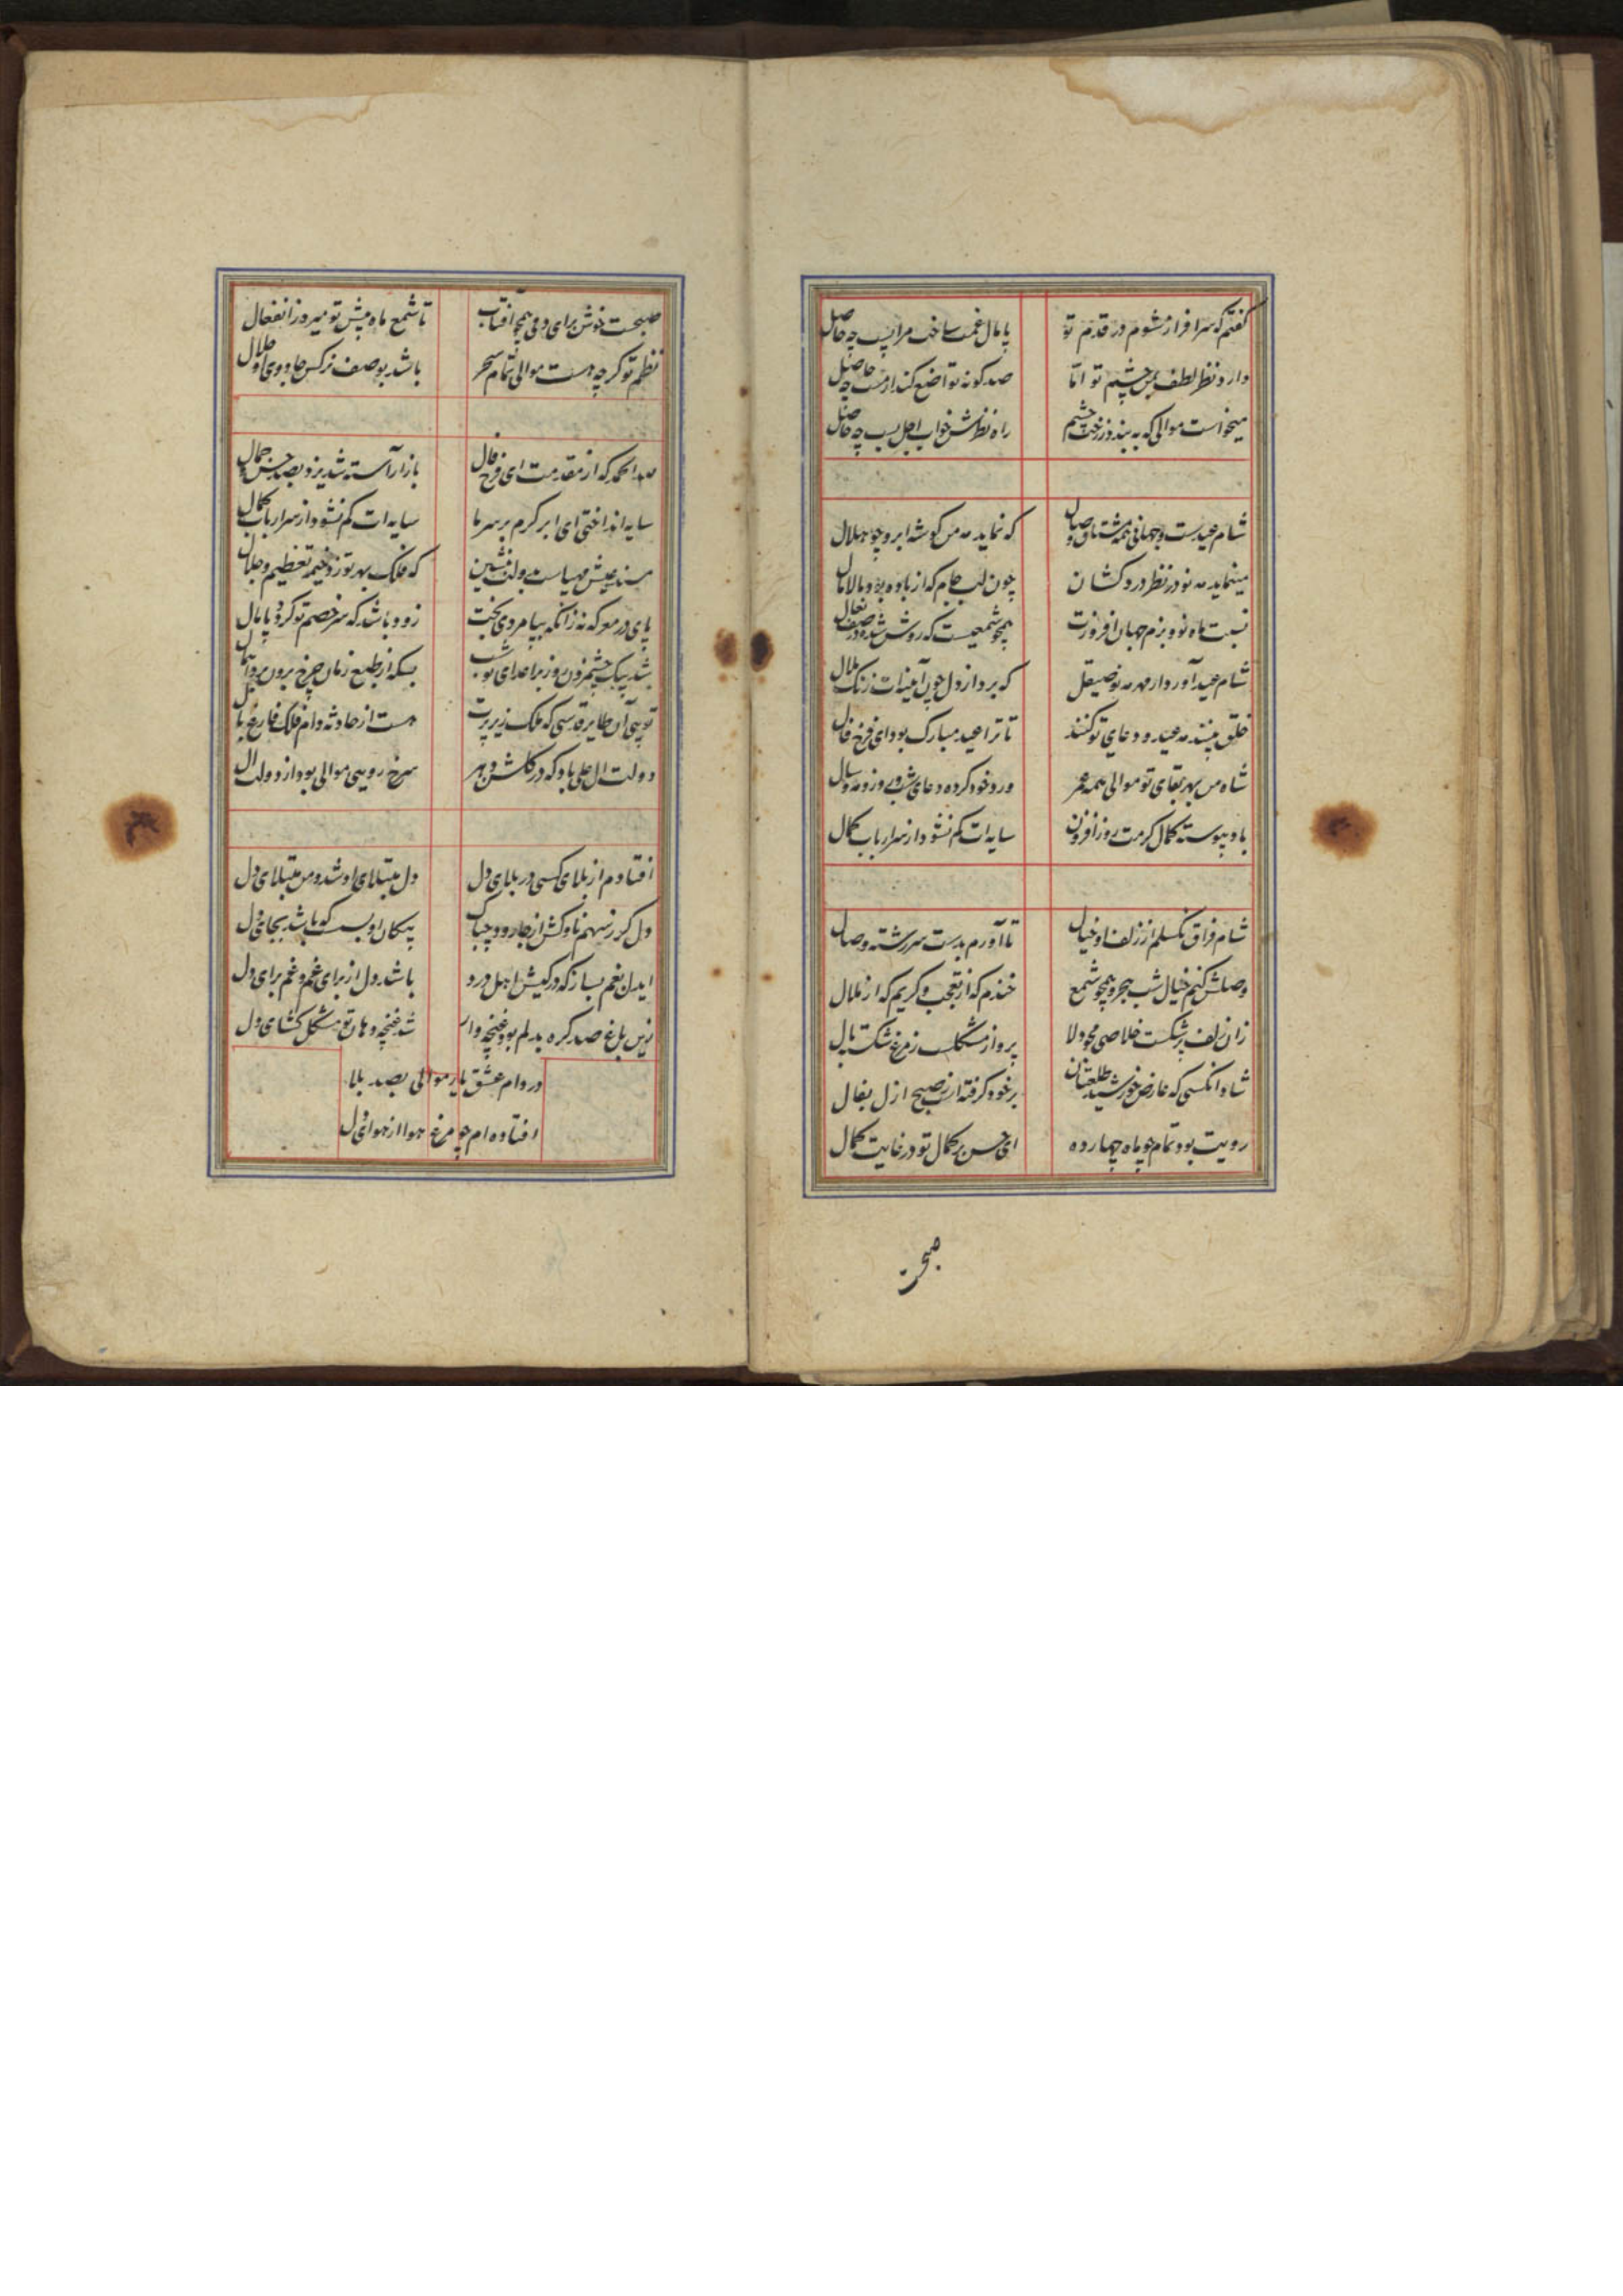 گفتم که سرافراز شوم در قدم تو پامال غمت ساخت مرا پس چه حاصل
دارد نظر لطف بمن چشم تو اما صد گونه تواضع کند از مست چه حاصل
میخواست موالی که به بیند ز رخت چشم راه نظرش خواب اجل بست چه حاصل
شام عیدست و جهانی همه مشتاق وصال که نماید مه من گوشه ابرو چو هلال
مینماید مه نو در نظر دردکشان چون لب جام که از باده بود مالامال
نسبت ماه نو و بزم جهان افروزت همچو شمعیست که روشن شده در صف نعال
شام عید آورد از مهر مه نو صیقل که برد از دل چون آینه‌ات زنگ ملال
خلق بینند مه عید و دعای تو کنند تا ترا عید مبارک بود ای فرخ فال
شاه من بهر بقای تو موالی همه عمر ورد خود کرده دعای شب و روز و مه و سال
باد پیوسته کمال کرمت روز افزون سایه‌ات کم نشود از سر ارباب کمال
شام فراق نگسلم از زلف او خیال تا آورم بدست سر رشته وصال
وصلش کنم خیال شب هجر و همچو شمع خندم که از تعجب و گریم که از ملال
زان زلف پرشکست خلاصی مجو دلا پرواز مشکلست ز مرغ شکسته بال
شاد انکسی که عارض خورشید طلعتان بر خود گرفته است ز صبح ازل بفال
رویت بود تمام چو ماه چهارده ای حسن بر کمال تو در غایت کمال
صبحت
صبحست خوش برای دمی همچو افتاب تا شمع ماه پیش تو میرد ز انفعال
نظم تو گر چه هست موالی تمام سحر باشد بوصف نرگس جادوی او حلال
لله الحمد که از مقدمت ای فرخ فال بازار آسته شد یزد بصد حسن و جمال
سایه انداختی ای ابر کرم بر سر ما سایه‌ات کم نشود از سر ارباب کمال
مسند عیش مهیاست بدولت بنشین که فلک بهر تو زد خیمه تعظیم و جلال
پای در معرکه نه زانکه بپا مردی بخت زود باشد که سر خصم تو گردد پامال
شد بیک چشم زدن روز بر اعدای تو شب بسکه از طبع زمان چرخ برون برد
تویی آن طایر قدسی که فلک زیر پرت هست از حادثه دام فلک فارغ بال
دولت ال علی باد که در گلشن دهر سرخ رویی موالی بود از دولت ال
افتادم از بلای کسی در بلای دل دل مبتلای او شد و من مبتلای دل
دل گر ز سهم ناوکش از جا رود چه باک پیکان او بسست که باشد بجای دل
ایدل بغم بساز که در کیش اهل درد باشد دل از برای غم و غم برای دل
زین باغ صد گره بدلم بود غنچه وار شد غنچه دهان تو مشکل گشای دل
در دام عشق یار موالی بصد بلا
افتاده‌ام چو مرغ هوا از هوای دل